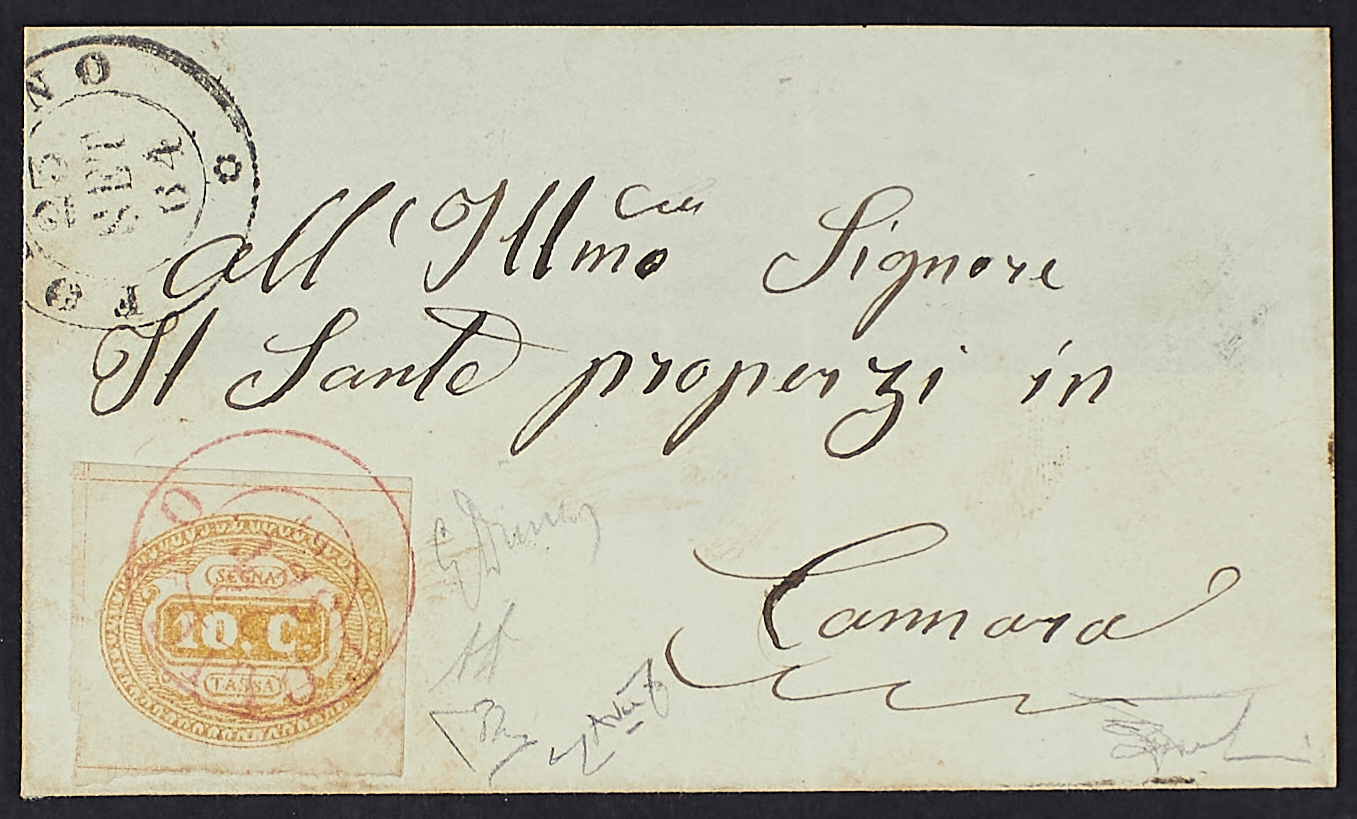 NO
25
SET
64
FO
All' Illmo Cui Signore
Il Sante properzi in
Cannara
SEGNA
10. C.
TASSA